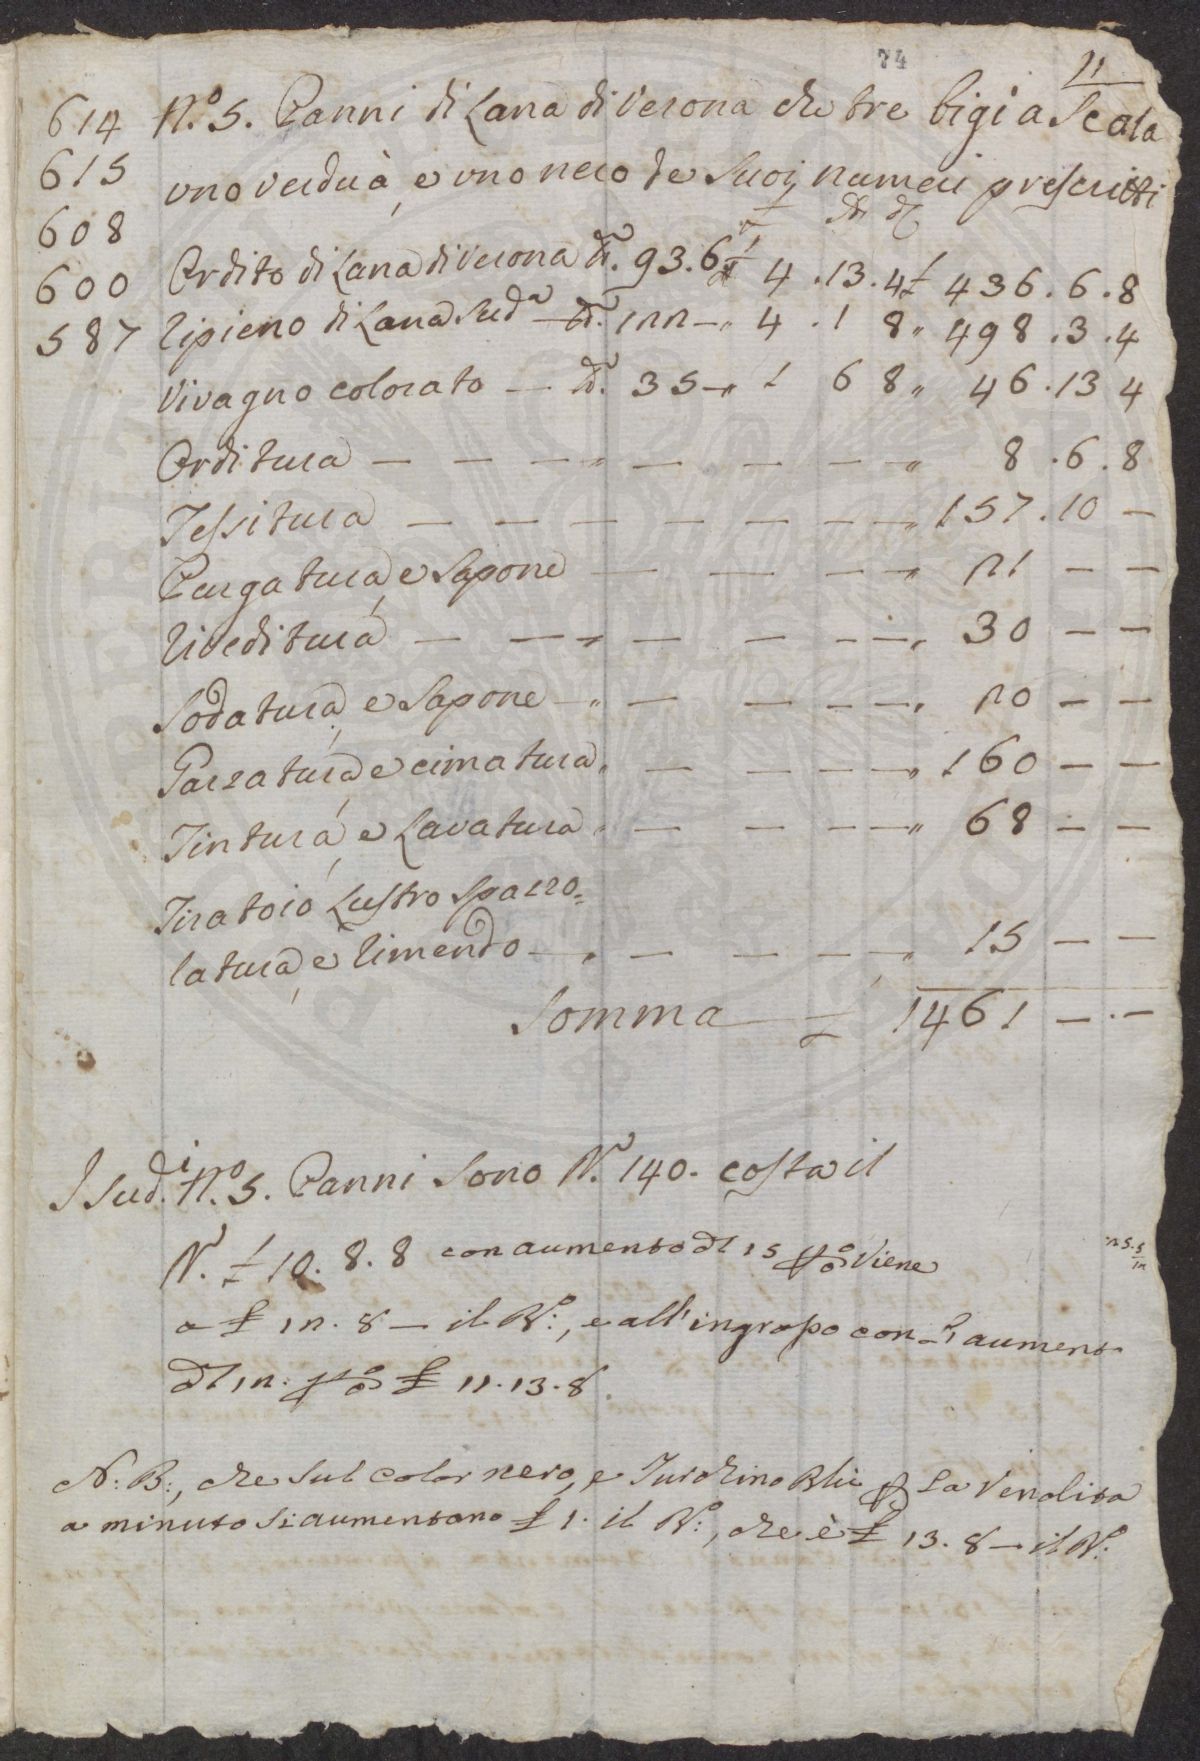 74
11
614 N.º 5. Panni di Lana di Verona che tre bigi a Scala
615 uno verdurà, e uno nero de Suoi numeri prescritti
608
600 Ordito di Lana di Verona lb. 93.6 £ 4.13.4 £ 436.6.8
587 ripieno di Lana Sudª — lb. 122 — „ 4.1 8 „ 498.3.4
Vivagno colorato — lb. 35 — „ 1 6 8 „ 46.13 4
Orditura — — — „ — — — „ 8.6.8
Tessitura — — — — — — — „ 157.10 —
Purgatura, e Sapone — — — „ 21 — —
riveditura — — „ — — — „ 30 — —
Sodatura, e Sapone — „ — — — „ 20 — —
Garzatura e cimatura „ — — — „ 160 — —
Tintura, e Lavatura „ — — — „ 68 — —
Tiratoio Lustro Spazzo=
latura, e rimendo — „ — — — „ 15 — —
Somma — £ 1461 — . —
I Sud.i N.º 5. Panni Sono B. 140. costa il
B. £ 10.8.8 con aumento di 15 p%o viene
25.5/12
a £ 12.8 — il B.º, e all'ingrosso con l'aument
di 12. p%o £ 11.13.8.
N: B:, che Sul color nero, e Turchino Blù p la Vendita
a minuto Si aumentano £ 1. il B.º, che è £ 13.8 — il B.º